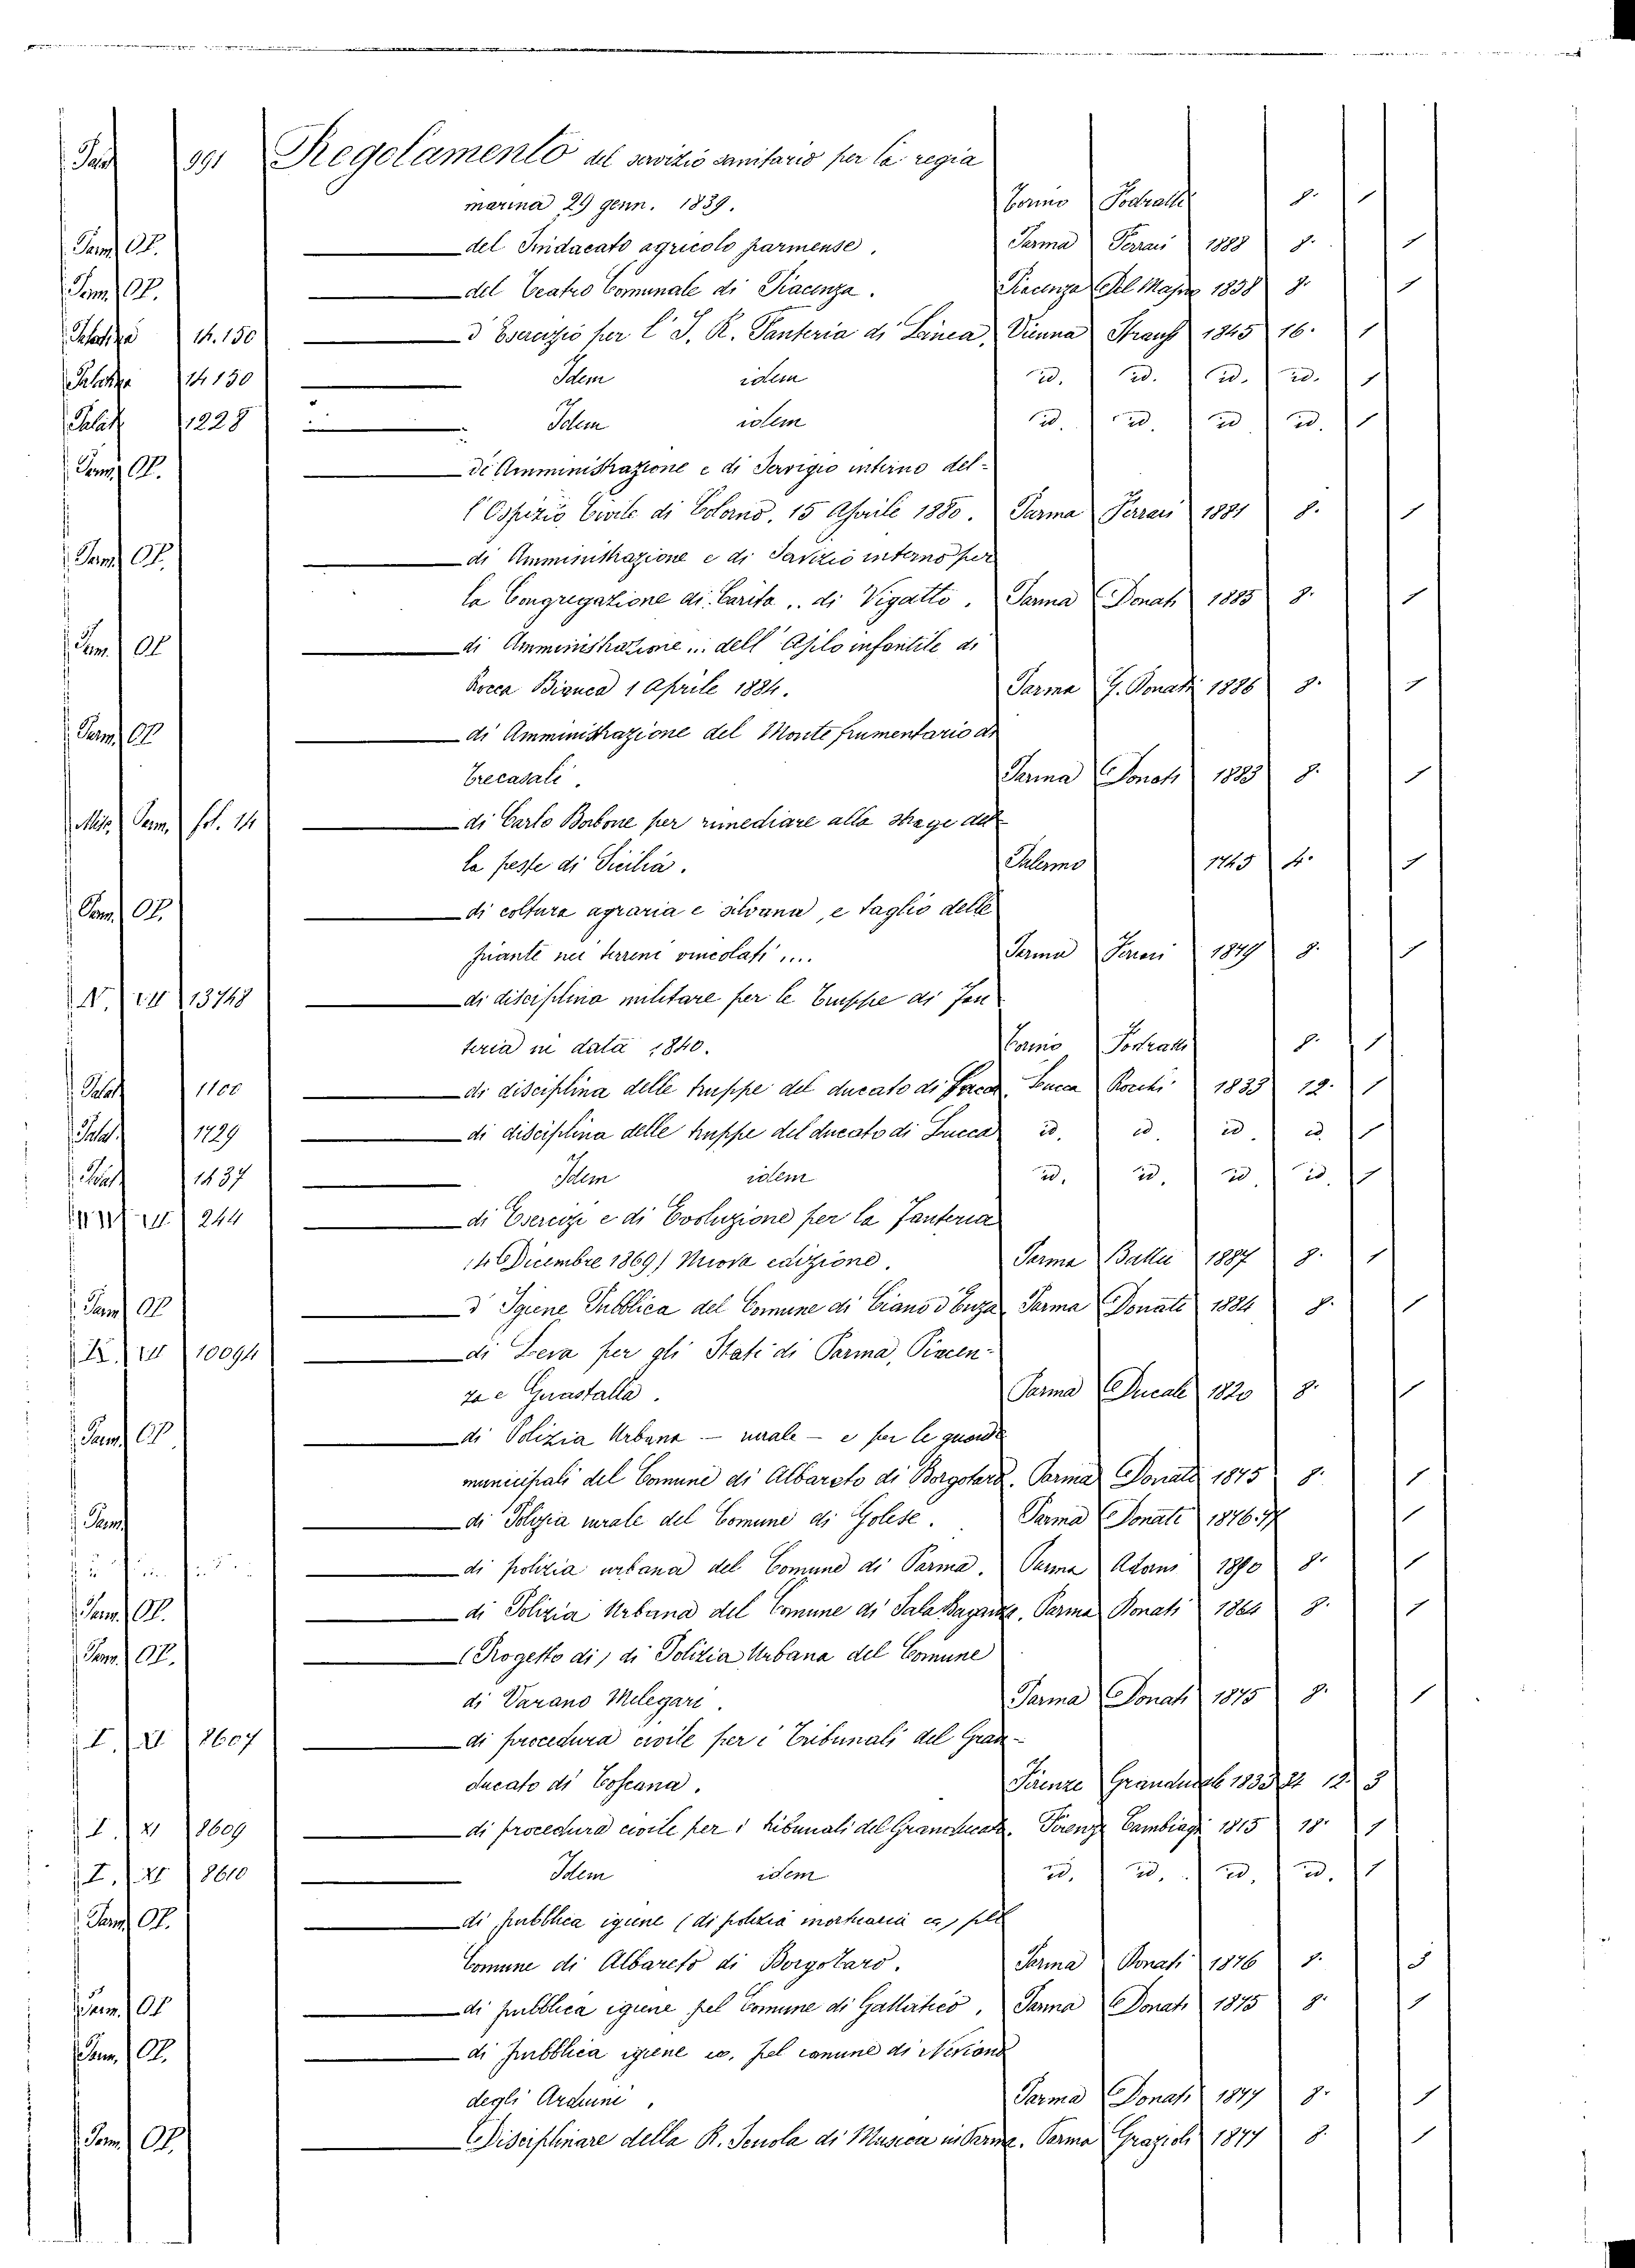 991 Regolamento del servizio sanitario per la regia
marina 29 genn. 1839. Torino Fodratti 8. 1
Parm. Op. del Sindacato agricolo parmense. Parma Ferrari 1888 8. 1
Parm. Op. del Teatro Comunale di Piacenza. Piacenza Del Majno 1838 8. 1
Palatina 14.150 d'Esercizio per l'I. R. Fanteria di Linea. Vienna Strauss 1845 16. 1
Palatina 14150 Idem idem id. id. id. id. 1
Palat. 1228 Idem idem id. id. id id. 1
Parm. Op. di Amministrazione e di Servigio interno del-
l'Ospizio Civile di Colorno. 15 Aprile 1880. Parma Ferrari 1881 8. 1
Parm. Op. di Amministrazione e di Servizio interno per
la Congregazione di Carità .. di Vigatto. Parma Donati 1885 8. 1
Parm. Op di Amministrazione ... dell'Asilo infantile di
Rocca Bianca 1 Aprile 1884. Parma G. Donati 1886 8. 1
Parm. Op di Amministrazione del Monte frumentario di
Trecasali. Parma Donati 1883 8. 1
Misc. Parm. fol. 14 di Carlo Borbone per rimediare alla strage del-
la peste di Sicilia. Palermo 1745 4. 1
Parm. Op. di coltura agraria e silvana, e taglio delle
piante nei terreni vincolati .... Parma Ferrari 1849 8. 1
N. 13748 di disciplina militare per le Truppe di fan
teria in data 1840. Torino Fodratti 8. 1
Palat. 1100 di disciplina delle truppe del ducato di Lucca Lucca Rocchi 1833 12. 1
Palat. 1729 di disciplina delle truppe del ducato di Lucca id. id. id. id. 1
Palat. 1437 Idem idem id. id. id. id. 1
244 di Esercizi e di Evoluzione per la Fanteria
14 Dicembre 1869) Nuova edizione. Parma Battei 1887 8. 1
Parm. Op d'Igiene Pubblica del Comune di Ciano d'Enza Parma Donati 1884 8. 1
10094 di Leva per gli Stati di Parma, Piacen-
za e Guastalla. Parma Ducale 1820 8. 1
Parm. Op di Polizia Urbana — rurale — e per le guardie
municipali del Comune di Albareto di Borgotaro. Parma Donati 1875 8. 1
Parm. di Polizia rurale del Comune di Golese. Parma Donati 1876. 1
di polizia urbana del Comune di Parma. Parma Adorni 1890 8. 1
Parm. Op. di Polizia Urbana del Comune di Sala Baganza. Parma Donati 1864 8. 1
Parm. Op. (Progetto di) di Polizia Urbana del Comune
di Varano Melegari. Parma Donati 1875 8. 1
I. 8607 di procedura civile per i Tribunali del Gran-
ducato di Toscana. Firenze Granducale 1833 12. 3
I. 8609 di procedura civile per i tribunali del Granducato. Firenze Cambiagi 1815 18. 1
I. 8610 Idem idem id. id. id. id. 1
Parm. Op. di pubblica igiene (di polizia mortuaria ec) pel
Comune di Albareto di Borgotaro. Parma Donati 1876 8. 3
Parm. Op di pubblica igiene pel Comune di Gattatico. Parma Donati 1875 8. 1
Parm. Op. di pubblica igiene ec. pel comune di Neviano
degli Arduini. Parma Donati 1877 8. 1
Parm. Op. Disciplinare della R. Scuola di Musica in Parma. Parma Grazioli 1877 8. 1